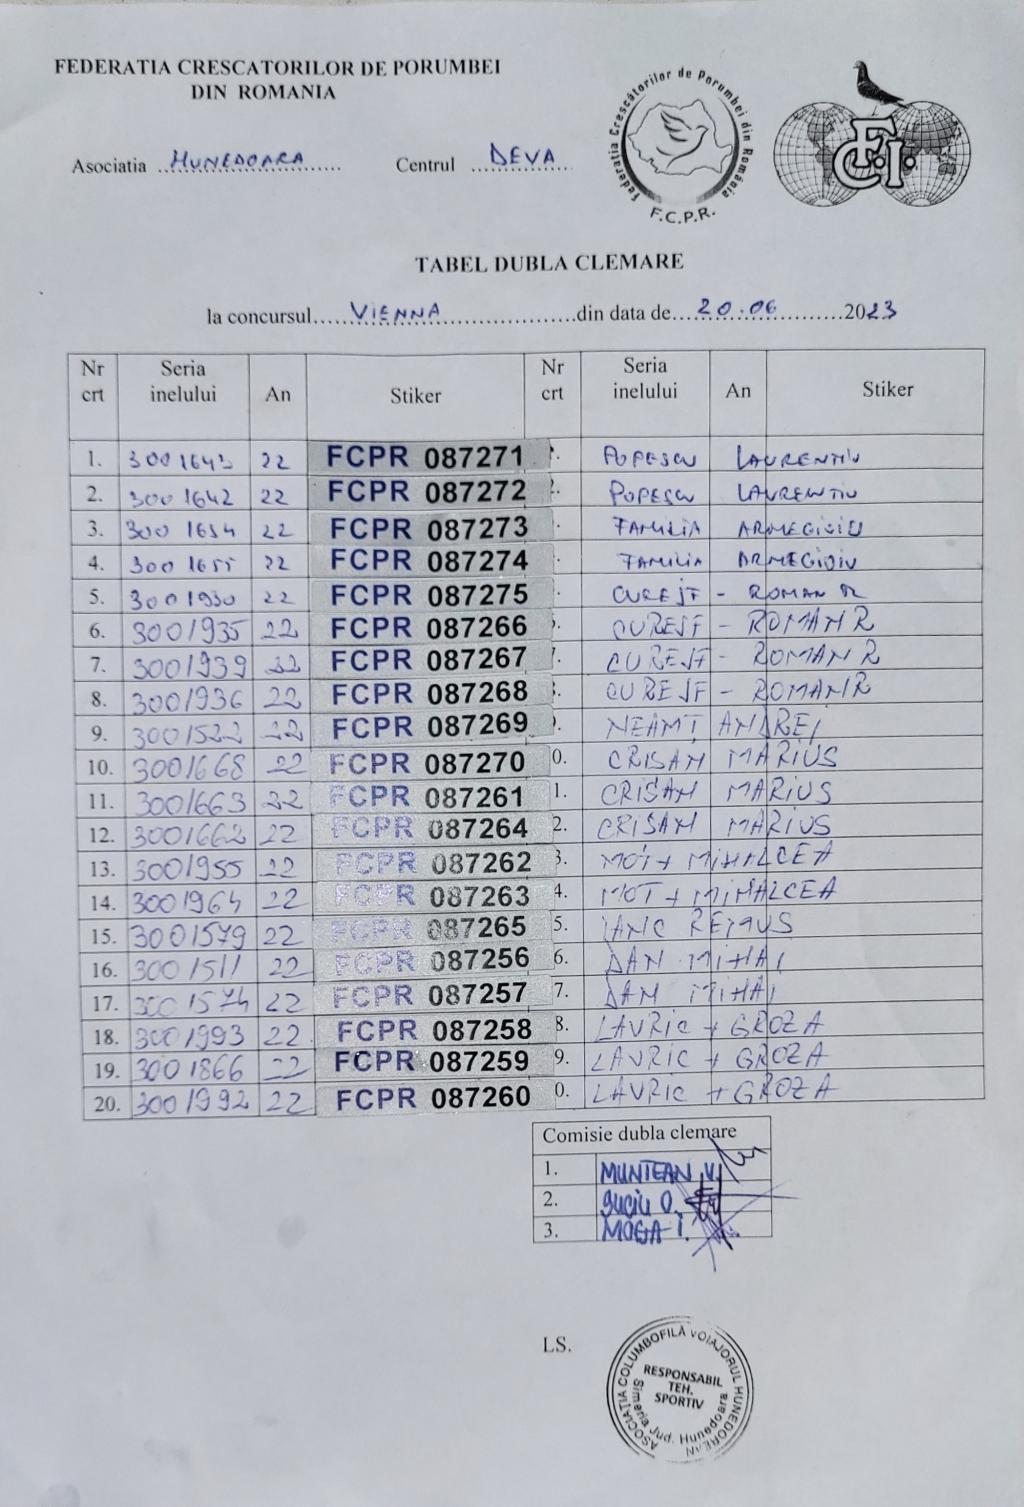 FEDERATIA CRESCATORILOR DE PORUMBEI
DIN ROMANIA
Federatia Crescătorilor de Porumbei din România
F.C.P.R.
F.C.I.
Asociatia HUNEDOARA Centrul DEVA
TABEL DUBLA CLEMARE
la concursul VIENNA din data de 20.06 2023
Nr crt Seria inelului An Stiker Nr crt Seria inelului An Stiker
1. 3001643 22 FCPR 087271 POPESCU LAURENTIU
2. 3001642 22 FCPR 087272 POPESCU LAURENTIU
3. 3001654 22 FCPR 087273 FAMILIA ARMEGIDIU
4. 3001655 22 FCPR 087274 FAMILIA ARMEGIDIU
5. 3001930 22 FCPR 087275 CUREJF - ROMAN R
6. 3001935 22 FCPR 087266 CUREJF - ROMAN R
7. 3001939 22 FCPR 087267 CUREJF - ROMAN R
8. 3001936 22 FCPR 087268 CUREJF - ROMAN R
9. 3001522 22 FCPR 087269 NEAMȚ ANDREI
10. 3001668 22 FCPR 087270 0. CRISAN MARIUS
11. 3001663 22 FCPR 087261 1. CRISAN MARIUS
12. 3001662 22 FCPR 087264 2. CRISAN MARIUS
13. 3001955 22 FCPR 087262 3. MOT + MIHALCEA
14. 3001964 22 FCPR 087263 4. MOT + MIHALCEA
15. 3001579 22 FCPR 087265 5. IANC REMUS
16. 3001511 22 FCPR 087256 6. DAN MIHAI
17. 3001574 22 FCPR 087257 7. DAN MIHAI
18. 3001993 22 FCPR 087258 8. LAVRIC + GROZA
19. 3001866 22 FCPR 087259 9. LAVRIC + GROZA
20. 3001992 22 FCPR 087260 0. LAVRIC + GROZA
Comisie dubla clemare
1. MUNTEAN V.
2. SUCIU O.
3. MOGA I.
LS.
ASOCIAȚIA COLUMBOFILĂ VOIAJORUL HUNEDOREAN
RESPONSABIL
TEH.
SPORTIV
Simeria Jud. Hunedoara